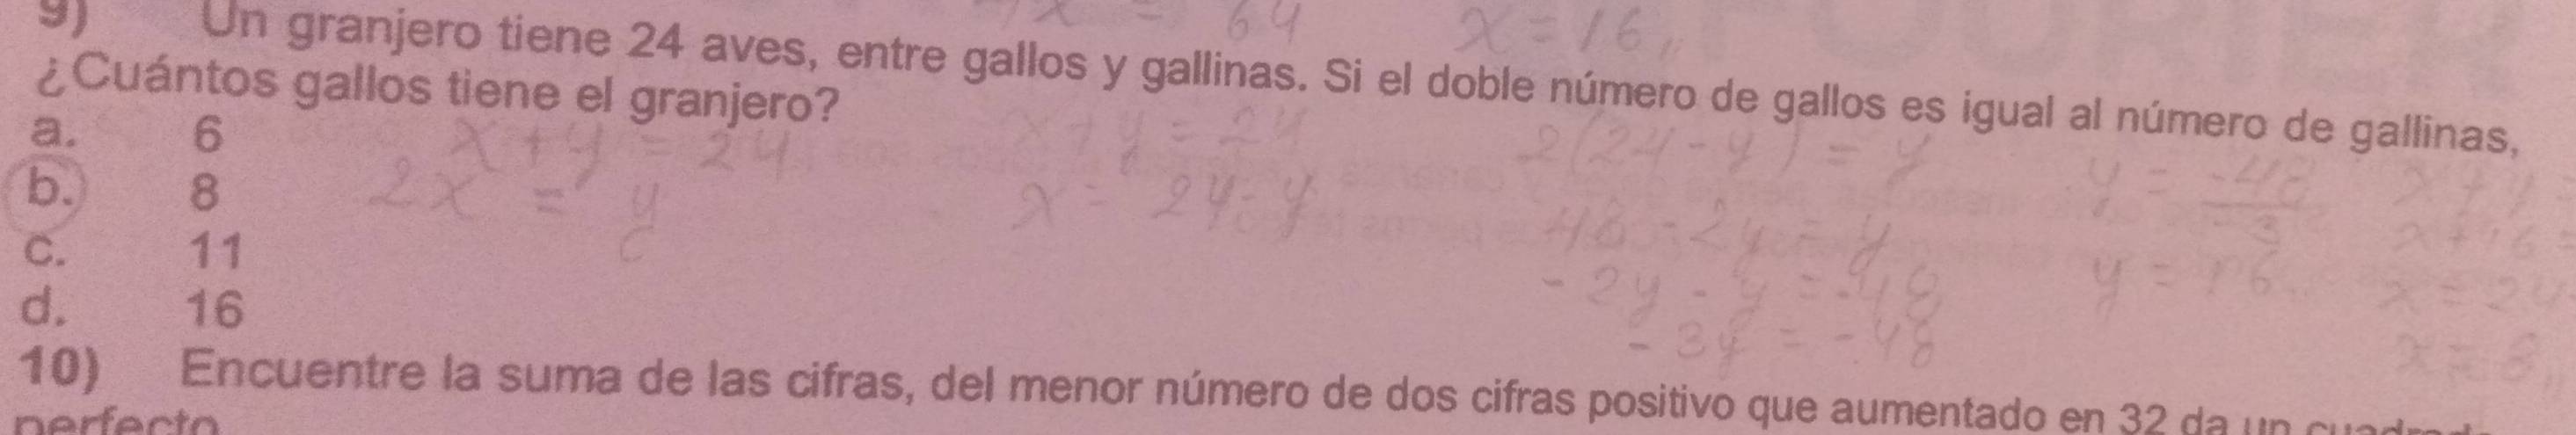 x = 64
x = 16
9) Un granjero tiene 24 aves, entre gallos y gallinas. Si el doble número de gallos es igual al número de gallinas,
¿Cuántos gallos tiene el granjero?
a. 6
b. 8
c. 11
d. 16
x + y = 24
2x = y
x + y = 24
x = 24 - y
2(24 - y) = y
48 - 2y = y
- 2y - y = -48
- 3y = -48
y = -48
-3
y = 16
x + y =
x + 16 =
x = 24
x = 8
10) Encuentre la suma de las cifras, del menor número de dos cifras positivo que aumentado en 32 da un
perfecto